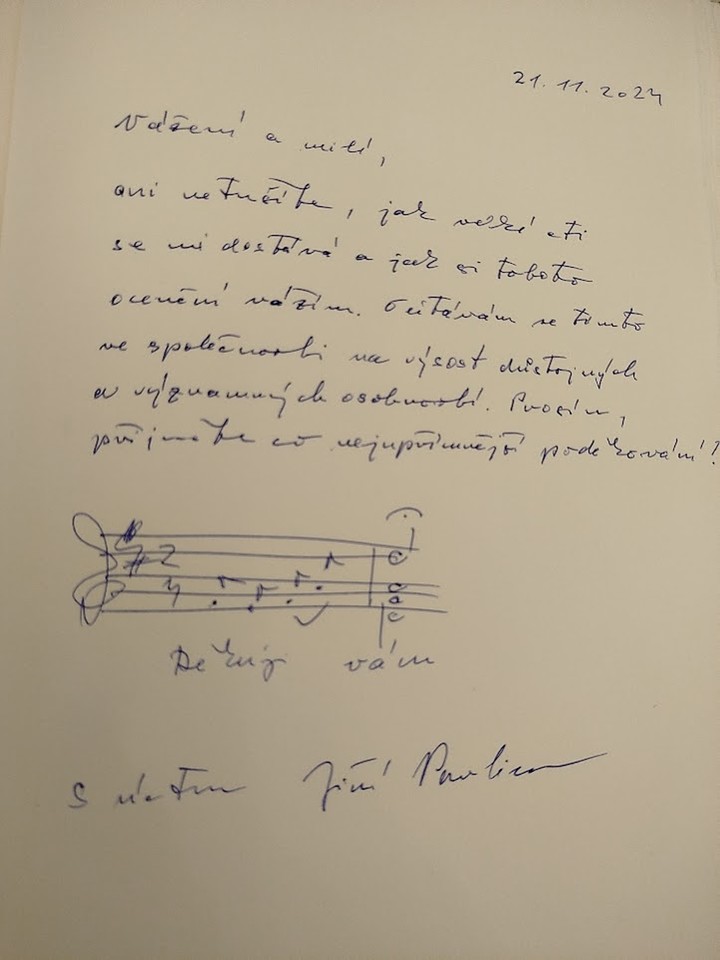 21. 11. 2024
Vážení a milí,
ani netušíte, jak velké cti
se mi dostává a jak si tohoto
ocenění vážím. Ocitávám se tímto
ve společnosti na výsost důstojných
a významných osobností. Prosím,
přijměte co nejupřímnější poděkování!
2
4
Děkuji vám
S úctou Jiří Pavlica